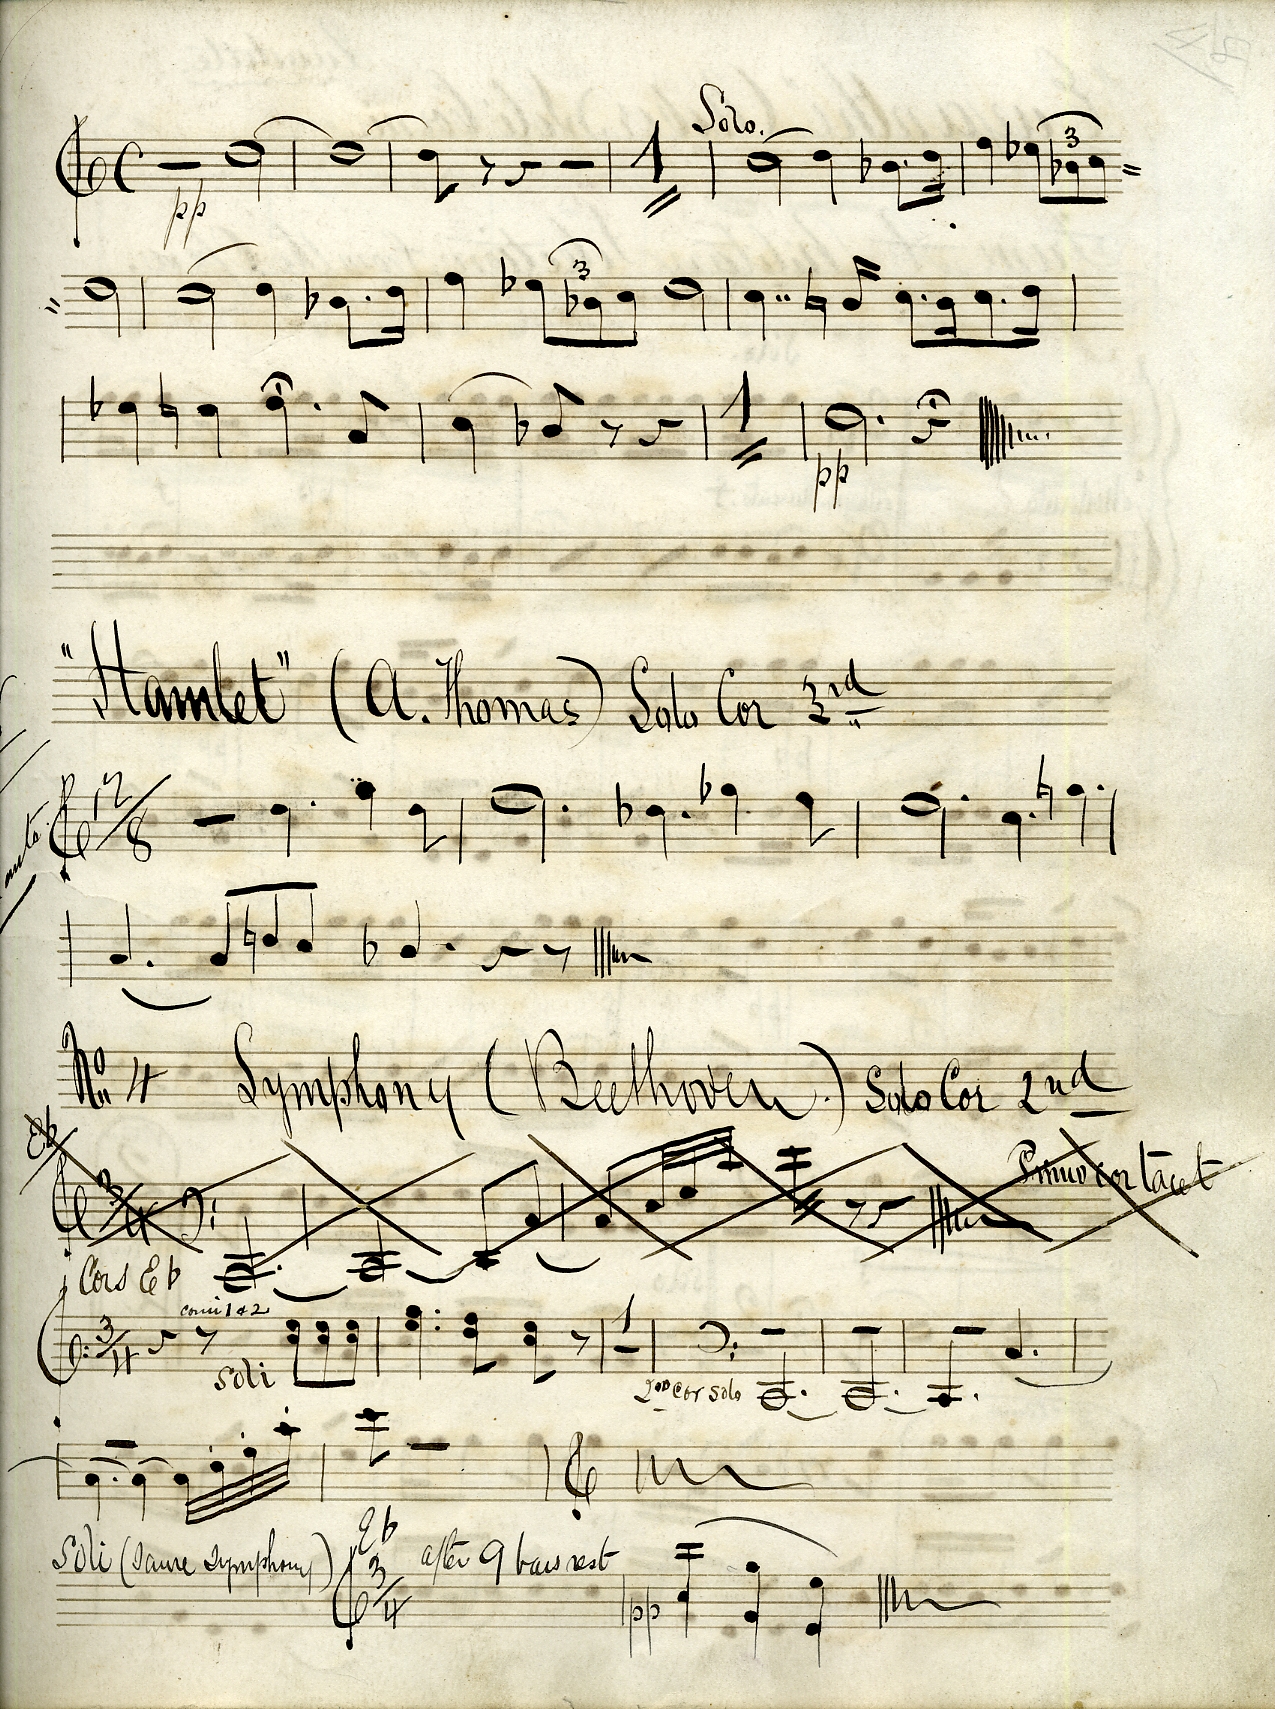 Solo.
pp
3
3
pp
"Hamlet" (A. Thomas) Solo Cor 3rd
12/8
No. 4 Symphony (Beethoven.) Solo Cor 2nd
Eb
3/4
Primo cor tacet
Cors Eb
corni 1 & 2
3/4
Soli
2nd Cor Solo
Soli (same Symphony) Eb 3/4 after 9 bars rest
pp